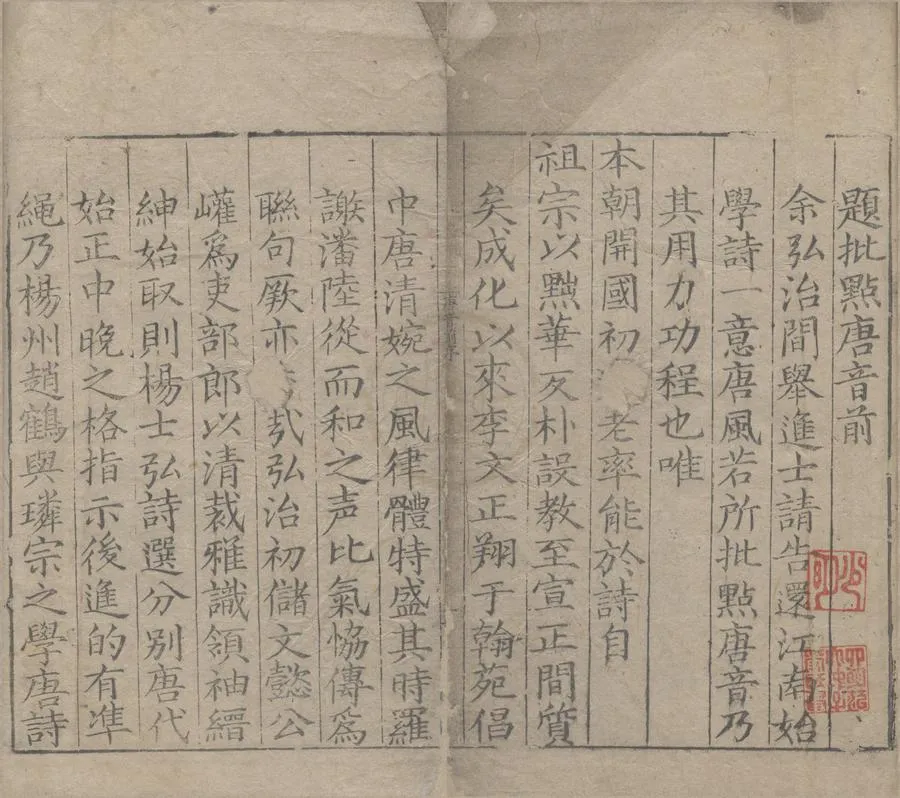 題批點唐音前
余弘治間舉進士請告還江南始
學詩一意唐風若所批點唐音乃
其用力功程也唯
本朝開國初老率能於詩自
祖宗以㸃華反朴設教至宣正間質
矣成化以來李文正翔于翰苑倡
中唐清婉之風律體特盛其時羅
謝潘陸從而和之声比氣恊傳爲
聮句厥亦㢤弘治初儲文懿公
巏爲吏部郎以清裁雅識領袖縉
紳始取則楊士弘詩選分别唐代
始正中晚之格指示後進的有凖
繩乃楊州趙鶴與璘宗之學唐詩